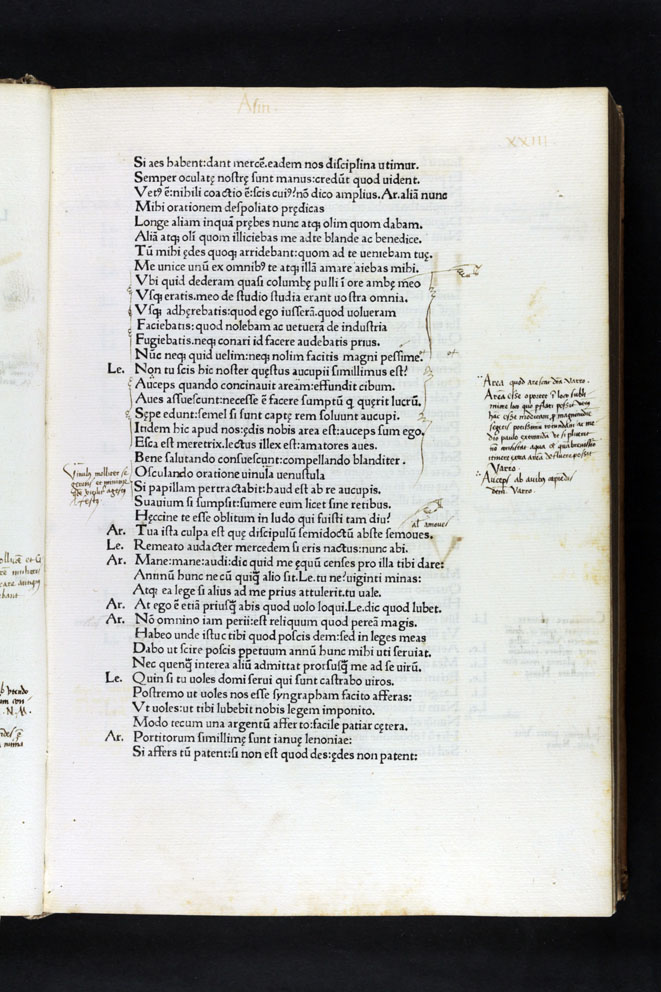 Asin.
XXIII
Si aes habent:dant mercē.eadem nos disciplina utimur.
Semper oculatę nostrę sunt manus:credūt quod uident.
Vetꝰ ē:nihili coactio ē:scis cuiꝰ?nō dico amplius.Ar.aliā nunc
Mihi orationem despoliato prędicas
Longe aliam inquā prębes nunc atqꝫ olim quom dabam.
Aliā atqꝫ oli quom illiciebas me adte blande ac benedice.
Tū mihi ędes quoqꝫ arridebant:quom ad te uenebam tuę.
Me unice unū ex omnibꝰ te atqꝫ illā amare aiebas mihi.
Vbi quid dederam quasi columbę pulli ī ore ambę meo
Vsqꝫ eratis.meo de studio studia erant uostra omnia.
Vsqꝫ adhęrebatis:quod ego iusserā.quod uolueram
Faciebatis:quod nolebam ac uetuerā de industria
Fugiebatis.neqꝫ conari id facere audebatis prius.
Nūc neqꝫ quid uelim:neqꝫ nolim facitis magni pessime.
Le. Non tu scis hic noster quęstus aucupii simillimus est?
Auceps quando concinauit aream:effundit cibum.
Aues assuescunt:necesse ē facere sumptū q̄ quęrit lucrū.
Sępe edunt:semel si sunt captę rem soluunt aucupi.
Itidem hic apud nos:ędis nobis area est:auceps sum ego.
Esca est meretrix.lectus illex est:amatores aues.
Bene salutando consuescunt:compellando blanditer.
Osculando oratione uinula uenustula
Si papillam pertractabit:haud est ab re aucupis.
Suauium si sumpsit:sumere eum licet sine retibus.
Hęccine te esse oblitum in ludo qui fuisti tam diu?
Ar. Tua ista culpa est quę discipulū semidoctū abste semoues.
al amoues
Le. Remeato audacter mercedem si eris nactus:nunc abi.
Ar. Mane:mane:audi:dic quid me ęquū censes pro illa tibi dare:
Annū hunc ne cū quiqꝫ alio sit.Le.tu ne?uiginti minas:
Atqꝫ ea lege si alius ad me prius attulerit.tu uale.
Ar. At ego ē etiā priusqꝫ abis quod uolo loqui.Le.dic quod lubet.
Ar. Nō omnino iam perii:est reliquum quod pereā magis.
Habeo unde istuc tibi quod poscis dem:sed in leges meas
Dabo ut scire poscis ꝑpetuum annū hunc mihi uti seruiat.
Nec quenqꝫ interea aliū admittat prorsusqꝫ me ad se uirū.
Le. Quin si tu uoles domi serui qui sunt castrabo uiros.
Postremo ut uoles nos esse syngrapham facito afferas:
Vt uoles:ut tibi lubebit nobis legem imponito.
Modo tecum una argentū afferto:facile patiar cętera.
Ar. Portitorum simillimę sunt ianuę lenoniae:
Si affers tū patent:si non est quod des:ędes non patent:
Area quod
Varro.
Auceps ab auibus
Varro.